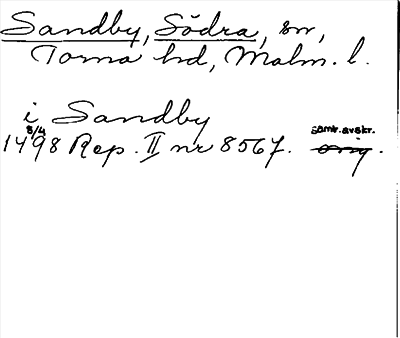 Sandby, Södra, sn,
Torna hd, Malm. l.
i Sandby
8/4
1498 Rep. II nr 8567. samt. avskr.
orig.